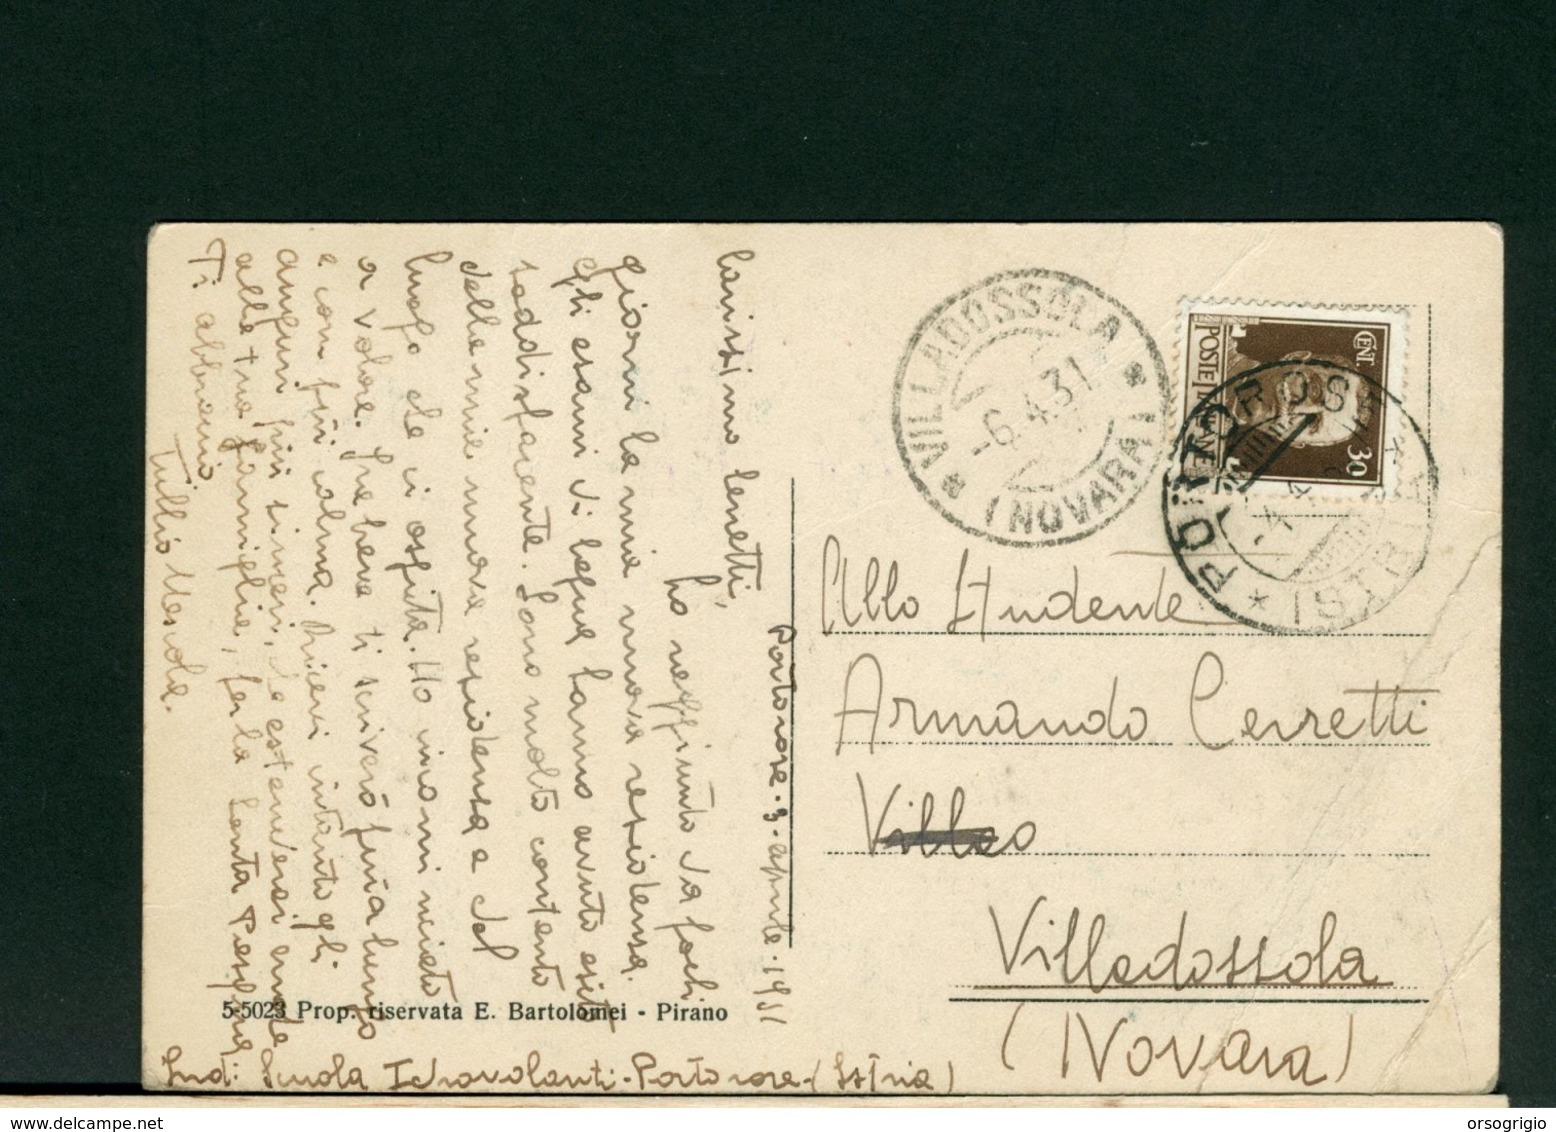 Portorose. 3. aprile. 1931
Carissimo Cerretti,
ho raggiunto da pochi
giorni la mia nuova residenza.
Gli esami di legna hanno avuto esito
soddisfacente. Sono molto contento
delle mie nuova residenza e del
luogo che ci ospita. Ho inconi
a volare. Fra breve ti scriverò più a lungo
e con più calma. Ricevi intanto gli
auguri più sinceri, da estendersi anche
alla tua famiglia, per la Santa Pasqua.
Ti abbraccio
Tullio
5-5023 Prop. riservata E. Bartolomei - Pirano
Ind: Scuola Idrovolanti - Portorose - (Istria)
VILLADOSSOLA
(NOVARA)
-6.4.31
POSTE ITALIANE
CENT. 30
PORTOROSE
ISTRIA
Allo Studente
Armando Cerretti
Villadossola
(Novara)
orsogrigio